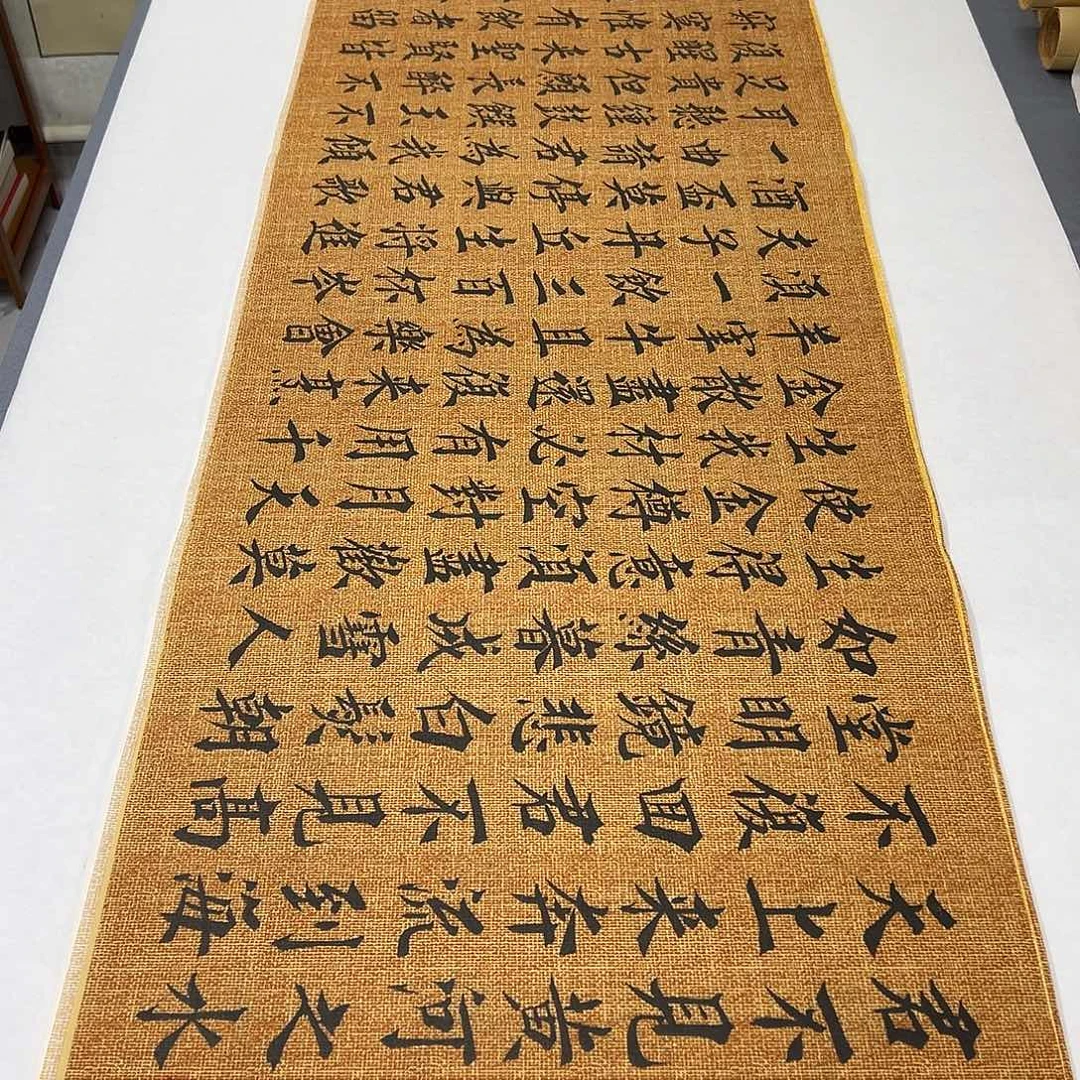 君不見黄河之水
天上来奔流到海
不復回君不見髙
堂明鏡悲白髮朝
如青絲暮成雪人
生得意須盡歡莫
使金樽空對月天
生我材必有用千
金散盡還復来烹
羊宰牛且為樂會
須一飲三百杯岑
夫子丹丘生將進
酒盃莫停與君歌
一曲請君為我傾
耳聽鐘鼓饌玉不
足貴但願長醉不
復醒古来聖賢皆
寂寞惟有飲者留